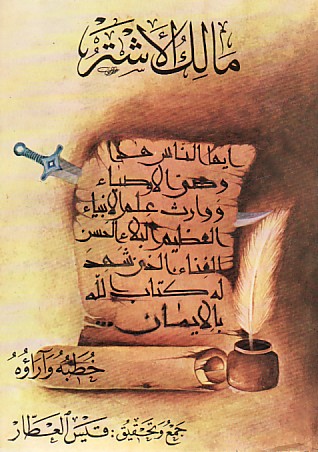 مَالِكُ الأَشْتَر
ايها الناس هذا
وصي الاوصياء
ووارث علم الانبياء
العظيم البلاء الحسن
الغناء الذي شهد
له كتاب الله
بالايمان ...
خُطَبُهُ وَآرَاؤُهُ
جمع وتحقيق : قَيس العَطّار